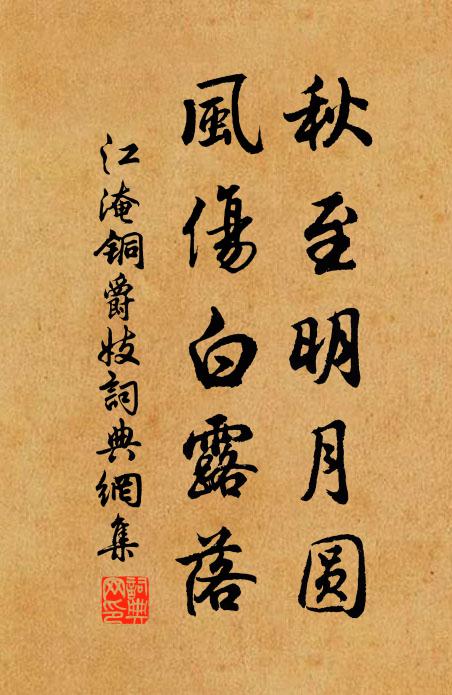 秋至明月圆
風傷白露落
江淹铜爵妓詞典網集
詞典網印